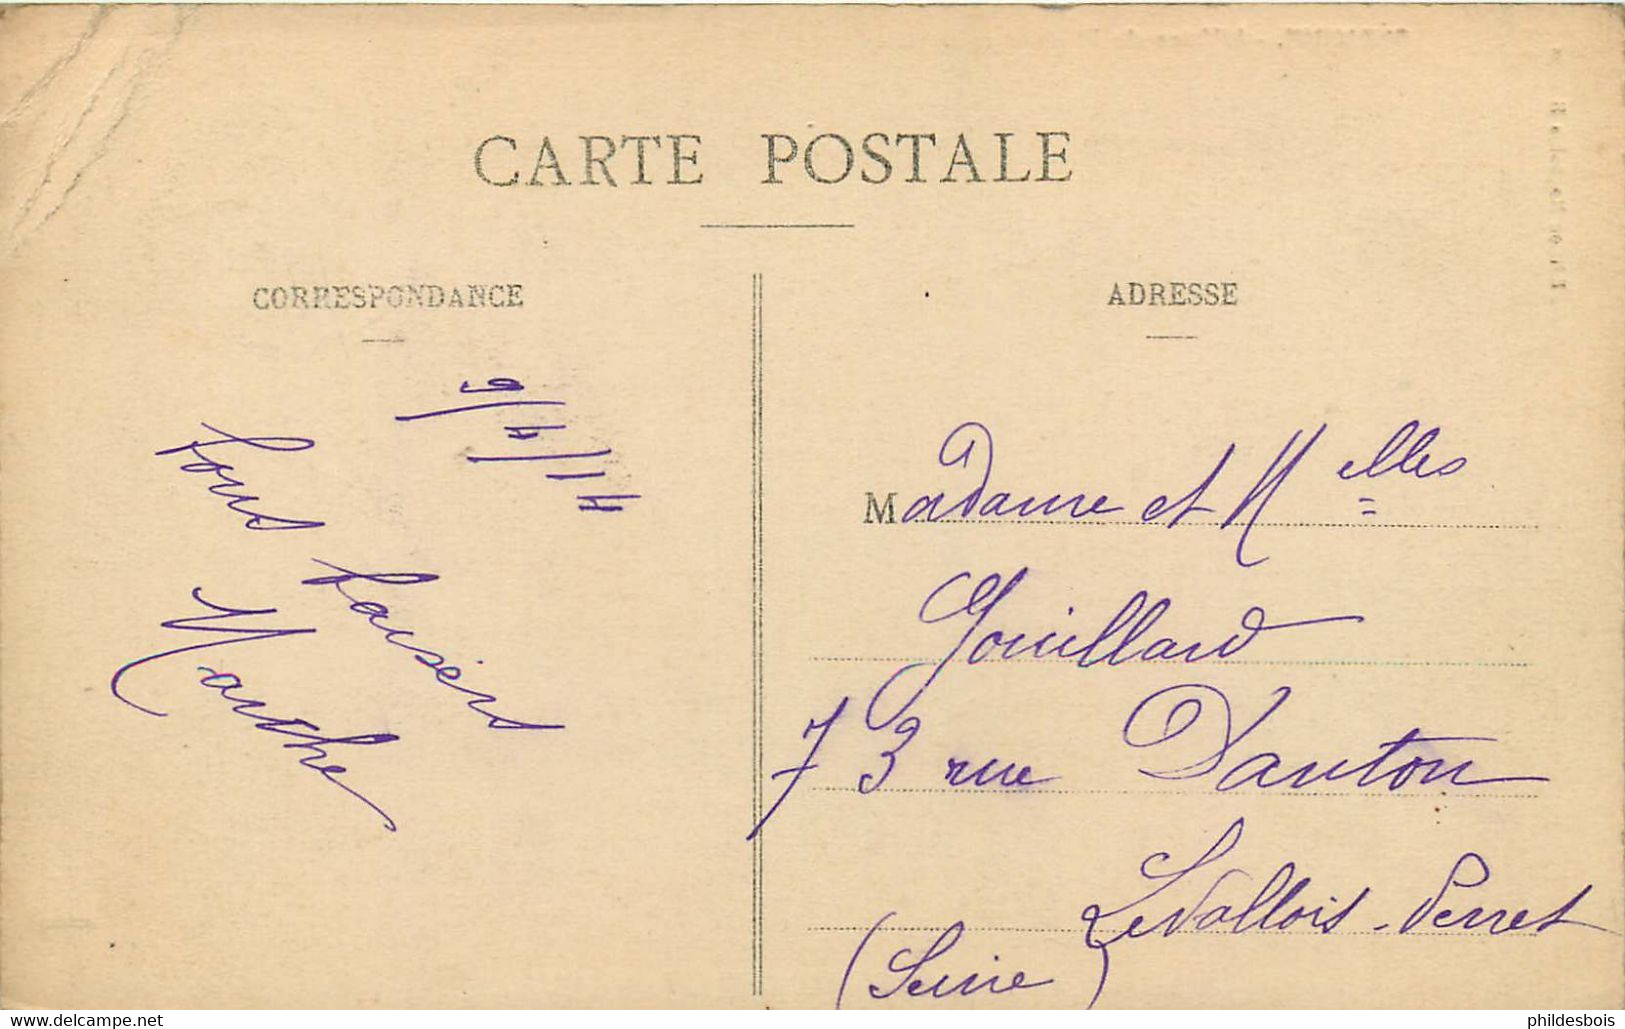 CARTE POSTALE
CORRESPONDANCE
9/4/14
bons baisers
Marthe
ADRESSE
Madame et Melles
Gouillard
73 rue Danton
Levallois-Perret
(Seine)
www.delcampe.net
phildesbois